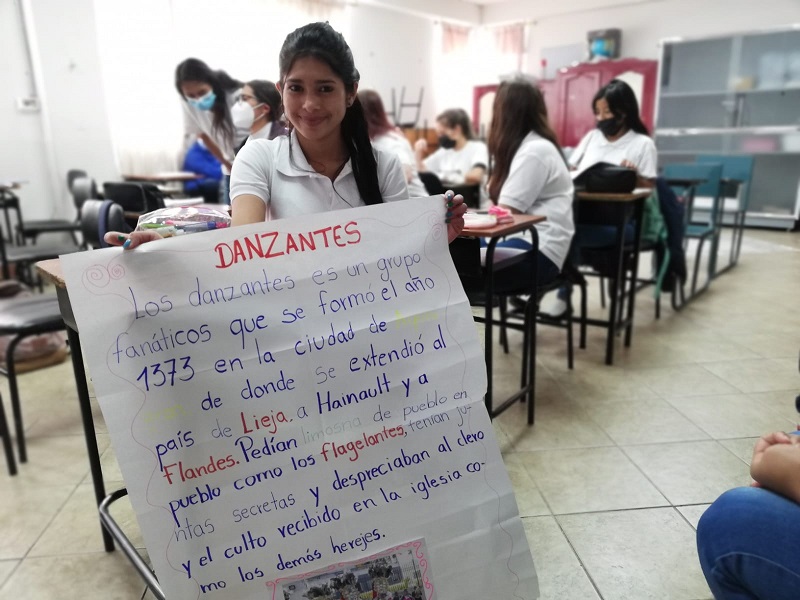 DANZANTES
Los danzantes es un grupo
fanáticos que se formó el año
1373 en la ciudad de
de donde se extendió al
país de Lieja, a Hainault y a
Flandes. Pedían limosna de pueblo en
pueblo como los flagelantes, tenían ju-
ntas secretas y despreciaban al clero
y el culto recibido en la iglesia co-
mo los demós herejes.